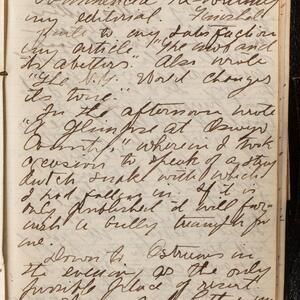 my editorial. Finished
quite to my satisfaction
my article "The mob and
its abettors". Also wrote
"The N.Y. World changes
its tone."
In the afternoon wrote
"A Glimpse at Oswego
County," wherein I took
occasion to speak of a
dutch snake with which
I had fallen in. If it is
only published it will fur-
nish a bully triumph for
me.
Down to Ostroms in
the evening as the only
possible place of resort.